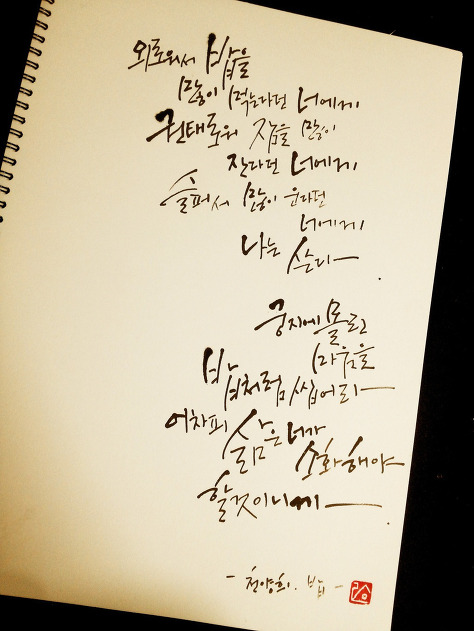 외로워서 밥을
많이 먹는다던 너에게
권태로워 잠을 많이
잔다던 너에게
슬퍼서 많이 운다던
너에게
나는 쓴다.
궁지에 몰린
마음을
밥처럼 씹어라
어차피 삶은 너가
소화해야
할 것이니까
- 천양희. 밥 -